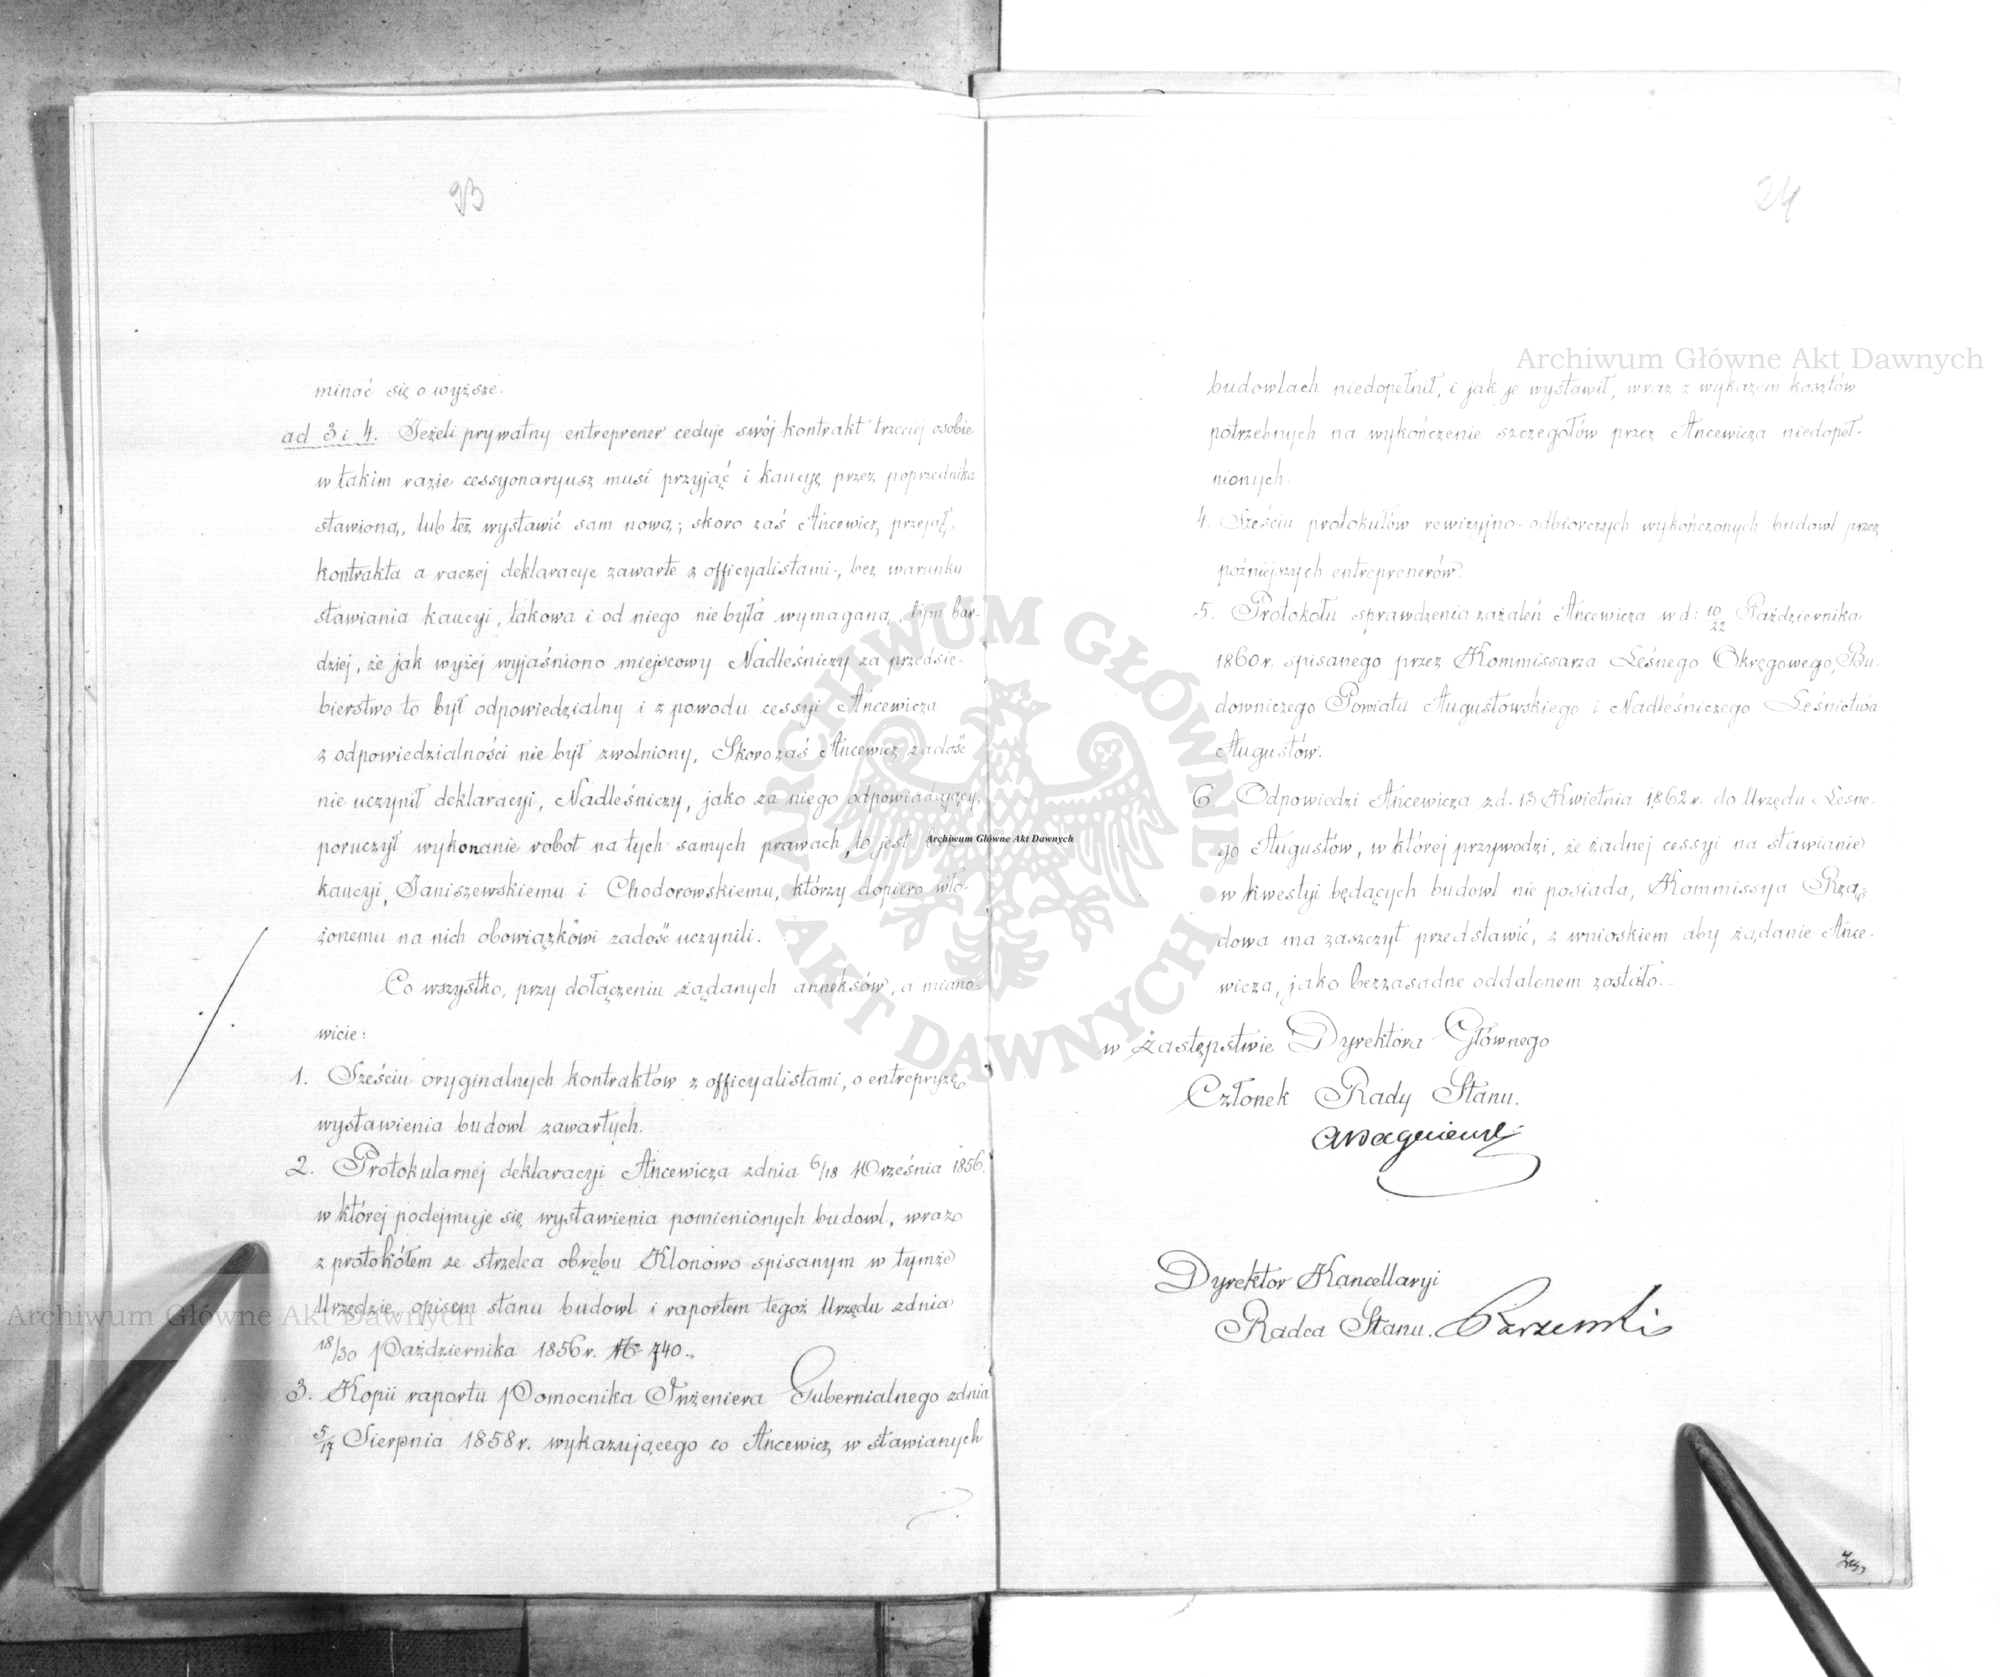 23
minać się o wyższe.
ad 3 i 4. Jeżeli prywatny entreprener ceduje swój kontrakt trzeciej osobie
w takim razie cessyonaryusz musi przyjąć i kaucyę przez poprzednika
stawioną, lub też wystawić sam nową; skoro zaś Ancewicz przejął
kontrakta a raczej deklaracye zawarte z officyalistami, bez warunku
stawiania kaucyi, takowa i od niego nie była wymaganą, tym bar-
dziej, że jak wyżej wyjaśniono miejscowy Nadleśniczy za przedsie-
bierstwo to był odpowiedzialny i z powodu cessyi Ancewicza
z odpowiedzialności nie był zwolniony. Skoro zaś Ancewicz zadość
nie uczynił deklaracyi, Nadleśniczy, jako za niego odpowiadający,
poruczył wykonanie robot na tych samych prawach, to jest
kaucyi, Janiszewskiemu i Chodorowskiemu, którzy dopiero wło-
żonemu na nich obowiązkowi zadość uczynili.
Co wszystko, przy dołączeniu żądanych anneksów, a miano-
wicie:
1. Sześciu oryginalnych kontraktów z officyalistami, o entrepryzę
wystawienia budowl zawartych.
2. Protokularnej deklaracyi Ancewicza z dnia 6/18 Września 1856.
w której podejmuje się wystawienia pomienionych budowl, wraz
z protokółem ze strzelca obrębu Klonowo spisanym w tymże
Urzędzie, opisem stanu budowl i raportem tegoż Urzędu z dnia
18/30 Października 1856 r. № 740.
3. Kopii raportu Pomocnika Inżeniera Gubernialnego z dnia
5/17 Sierpnia 1858 r. wykazującego co Ancewicz w stawianych
24
Archiwum Główne Akt Dawnych
budowlach niedopełnił, i jak je wystawił, wraz z wykazem kosztów
potrzebnych na wykończenie szczegołów przez Ancewicza niedopeł-
nionych.
4. Sześciu protokułów rewizyjno-odbiorczych wykończonych budowl przez
poźniejszych entreprenerów.
5. Protokołu sprawdzenia zażaleń Ancewicza w d: 10/22 Października
1860 r. spisanego przez Kommissarza Leśnego Okręgowego, Bu-
downiczego Powiatu Augustowskiego i Nadleśniczego Leśnictwa
Augustów.
6. Odpowiedzi Ancewicza z d. 13 Kwietnia 1862 r. do Urzędu Leśne-
go Augustów, w której przywodzi, że żadnej cessyi na stawianie
w kwestyi będących budowl nie posiada, Kommissya Rzą-
dowa ma zaszczyt przedstawić, z wnioskiem aby żądanie Ance-
wicza, jako bezzasadne oddalonem zostało.
w Zastępstwie Dyrektora Głównego
Członek Rady Stanu.
Dyrektor Kancellaryi
Radca Stanu.
ARCHIWUM GŁÓWNE AKT DAWNYCH
Archiwum Główne Akt Dawnych
Archiwum Główne Akt Dawnych